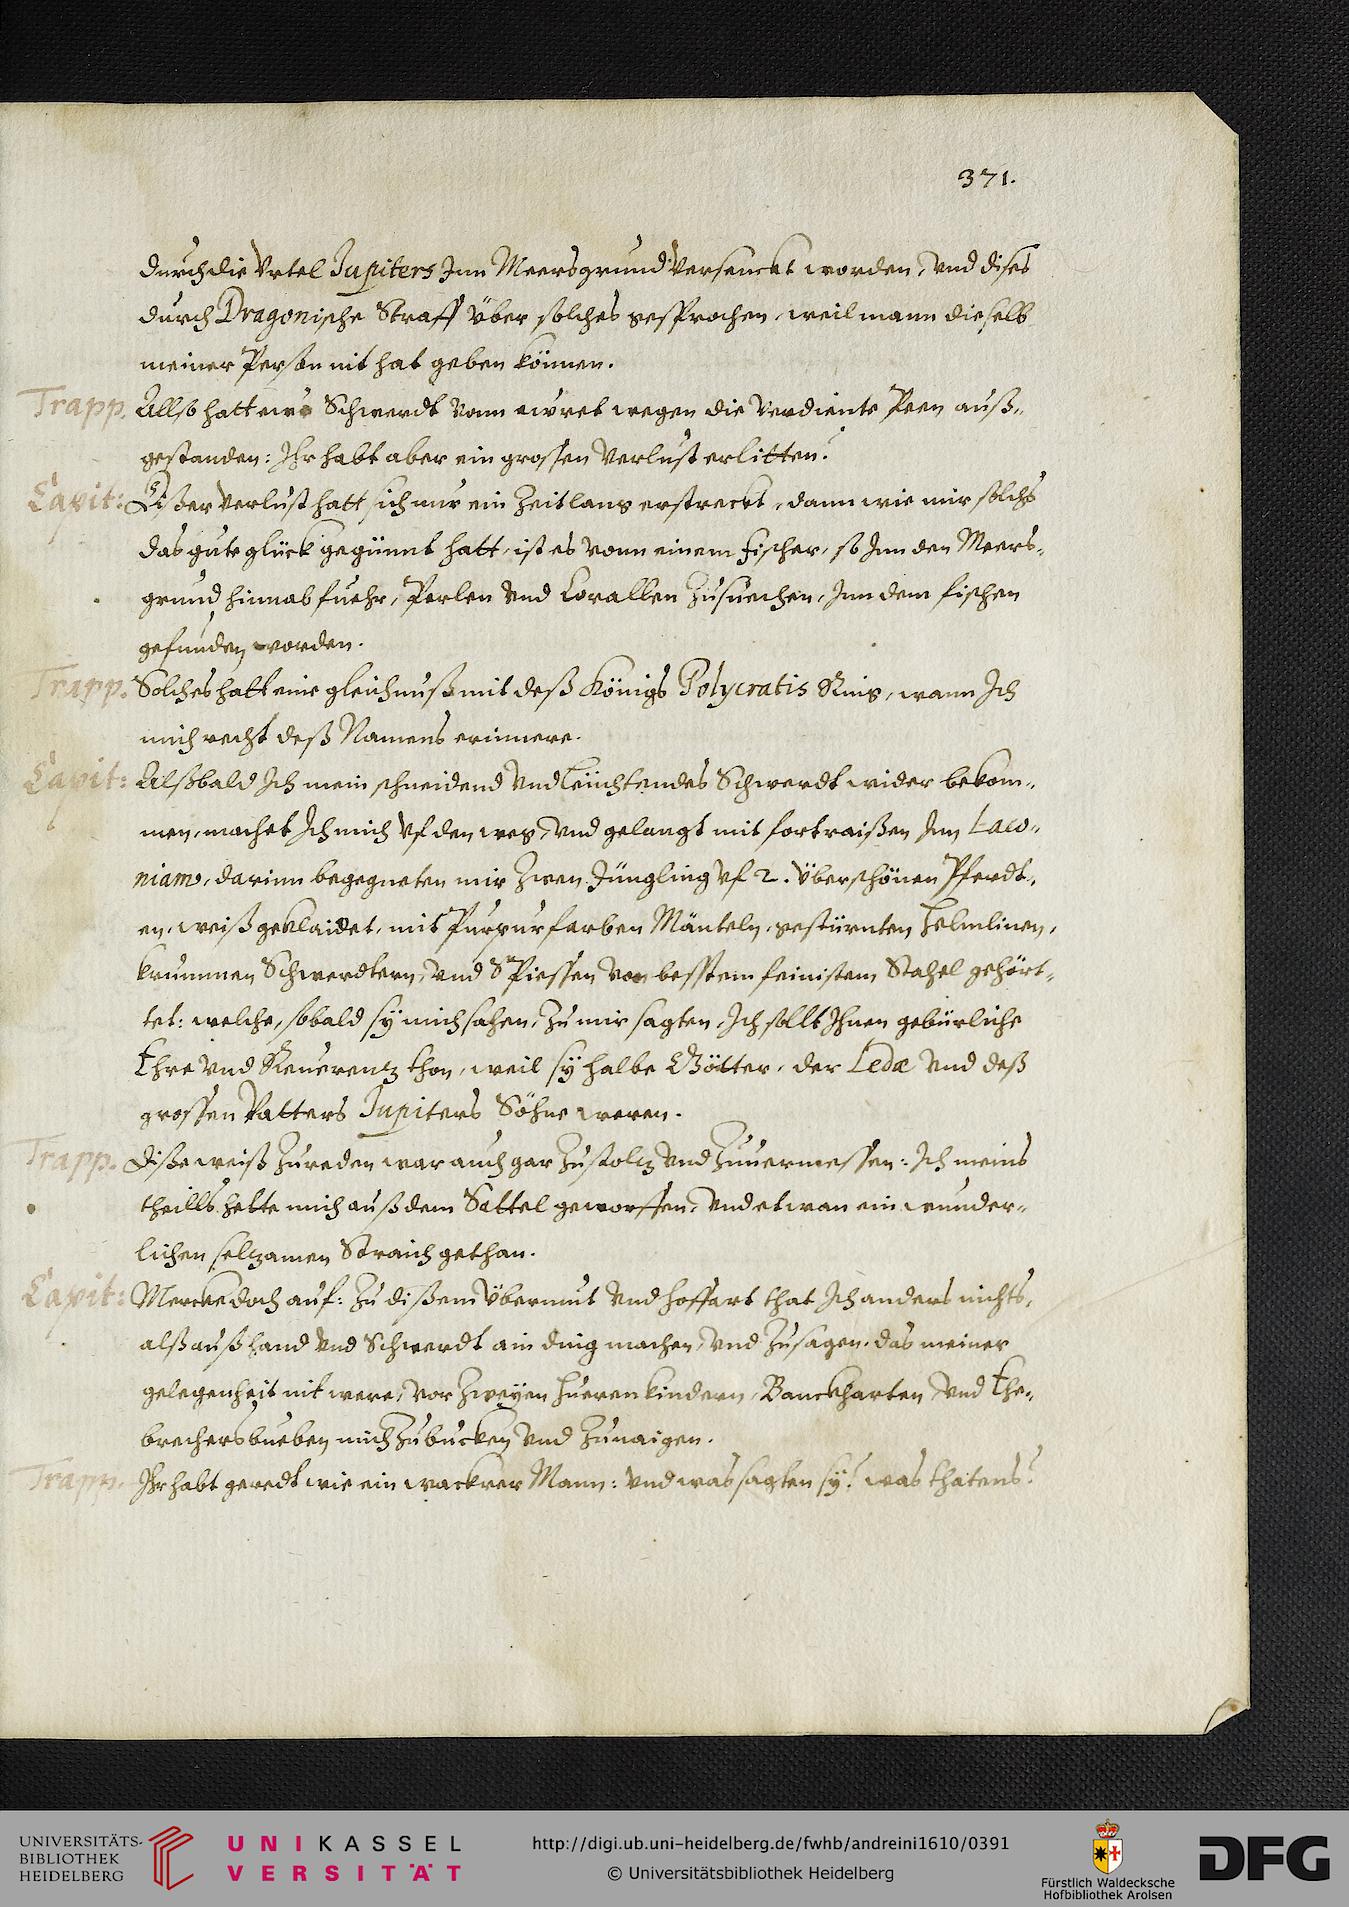 371.
durch die Vrtel Jupiters Jnn Meersgrund versenckt worden, vnd dises
durch Dragonische Straff über solches gesprochen, weil mann dieselb
meiner Person nit hat geben können.
Trapp. Allso hatt ewr Schwerdt vonn ewret wegen die verdiente Peen auß=
gestanden: Jhr habt aber ein grossen verlust erlitten?
Capit: Dißer verlust hatt sich nur ein Zeitlang erstreckt, dann wie mir solchs
das gute glück gegünnt hatt, ist es vonn einem fischer, so Jnn den Meers=
grund hinnab fuehr, Perlen vnd Corallen Zusuechen, Jnn dem fischen
gefunden worden.
Trapp. Solches hatt eine gleichnuß mit deß Königs Polycratis Ring, wann Jch
mich recht deß Namens erinnere.
Capit: Alßbald Jch mein schneidend vnd leüchtendes Schwerdt wider bekom=
men, machet Jch mich vf den weg, vnd gelangt mit fortraißen Jnn Laco=
niam, darinn begegneten mir Zwen Jüngling vf 2. überschönen Pferdt=
en, weiß geklaidet, mit Purpurfarben Mänteln, gestürnten helmlinen,
krummen Schwerdtern, vnd Spiessen von besstem feinistem Stahel gehört=
tet: welche, sobald sy mich sahen, Zu mir sagten, Jch sollt Jhnen gebürliche
Ehre vnd Reuerentz thon, weil sy halbe Götter, der Ledæ vnd deß
grossen Vatters Jupiters Söhne weren.
Trapp. Diße weiß Zureden war auch gar Zustoltz vnd Zuuermessen: Jch meins
theills hette mich auß dem Sattel geworffen, vnd etwan ein wunder=
lichen seltzamen Straich gethan.
Capit: Mercke doch auf: Zu dißem übermut vnd hoffart that Jch anders nichts,
alß auß hand vnd Schwerdt ain ding machen, vnd Zusagen, das meiner
gelegenheit nit were, vor Zweyen huerenkindern, Banckharten, vnd Ehe=
brechersbueben mich Zubucken vnd Zunaigen.
Trapp. Jhr habt geredt wie ein wackrer Mann: vnd was sagten sy? was thatens?
UNIVERSITÄTS-
BIBLIOTHEK
HEIDELBERG
UNIKASSEL
VERSITÄT
http://digi.ub.uni-heidelberg.de/fwhb/andreini1610/0391
© Universitätsbibliothek Heidelberg
Fürstlich Waldecksche
Hofbibliothek Arolsen
DFG